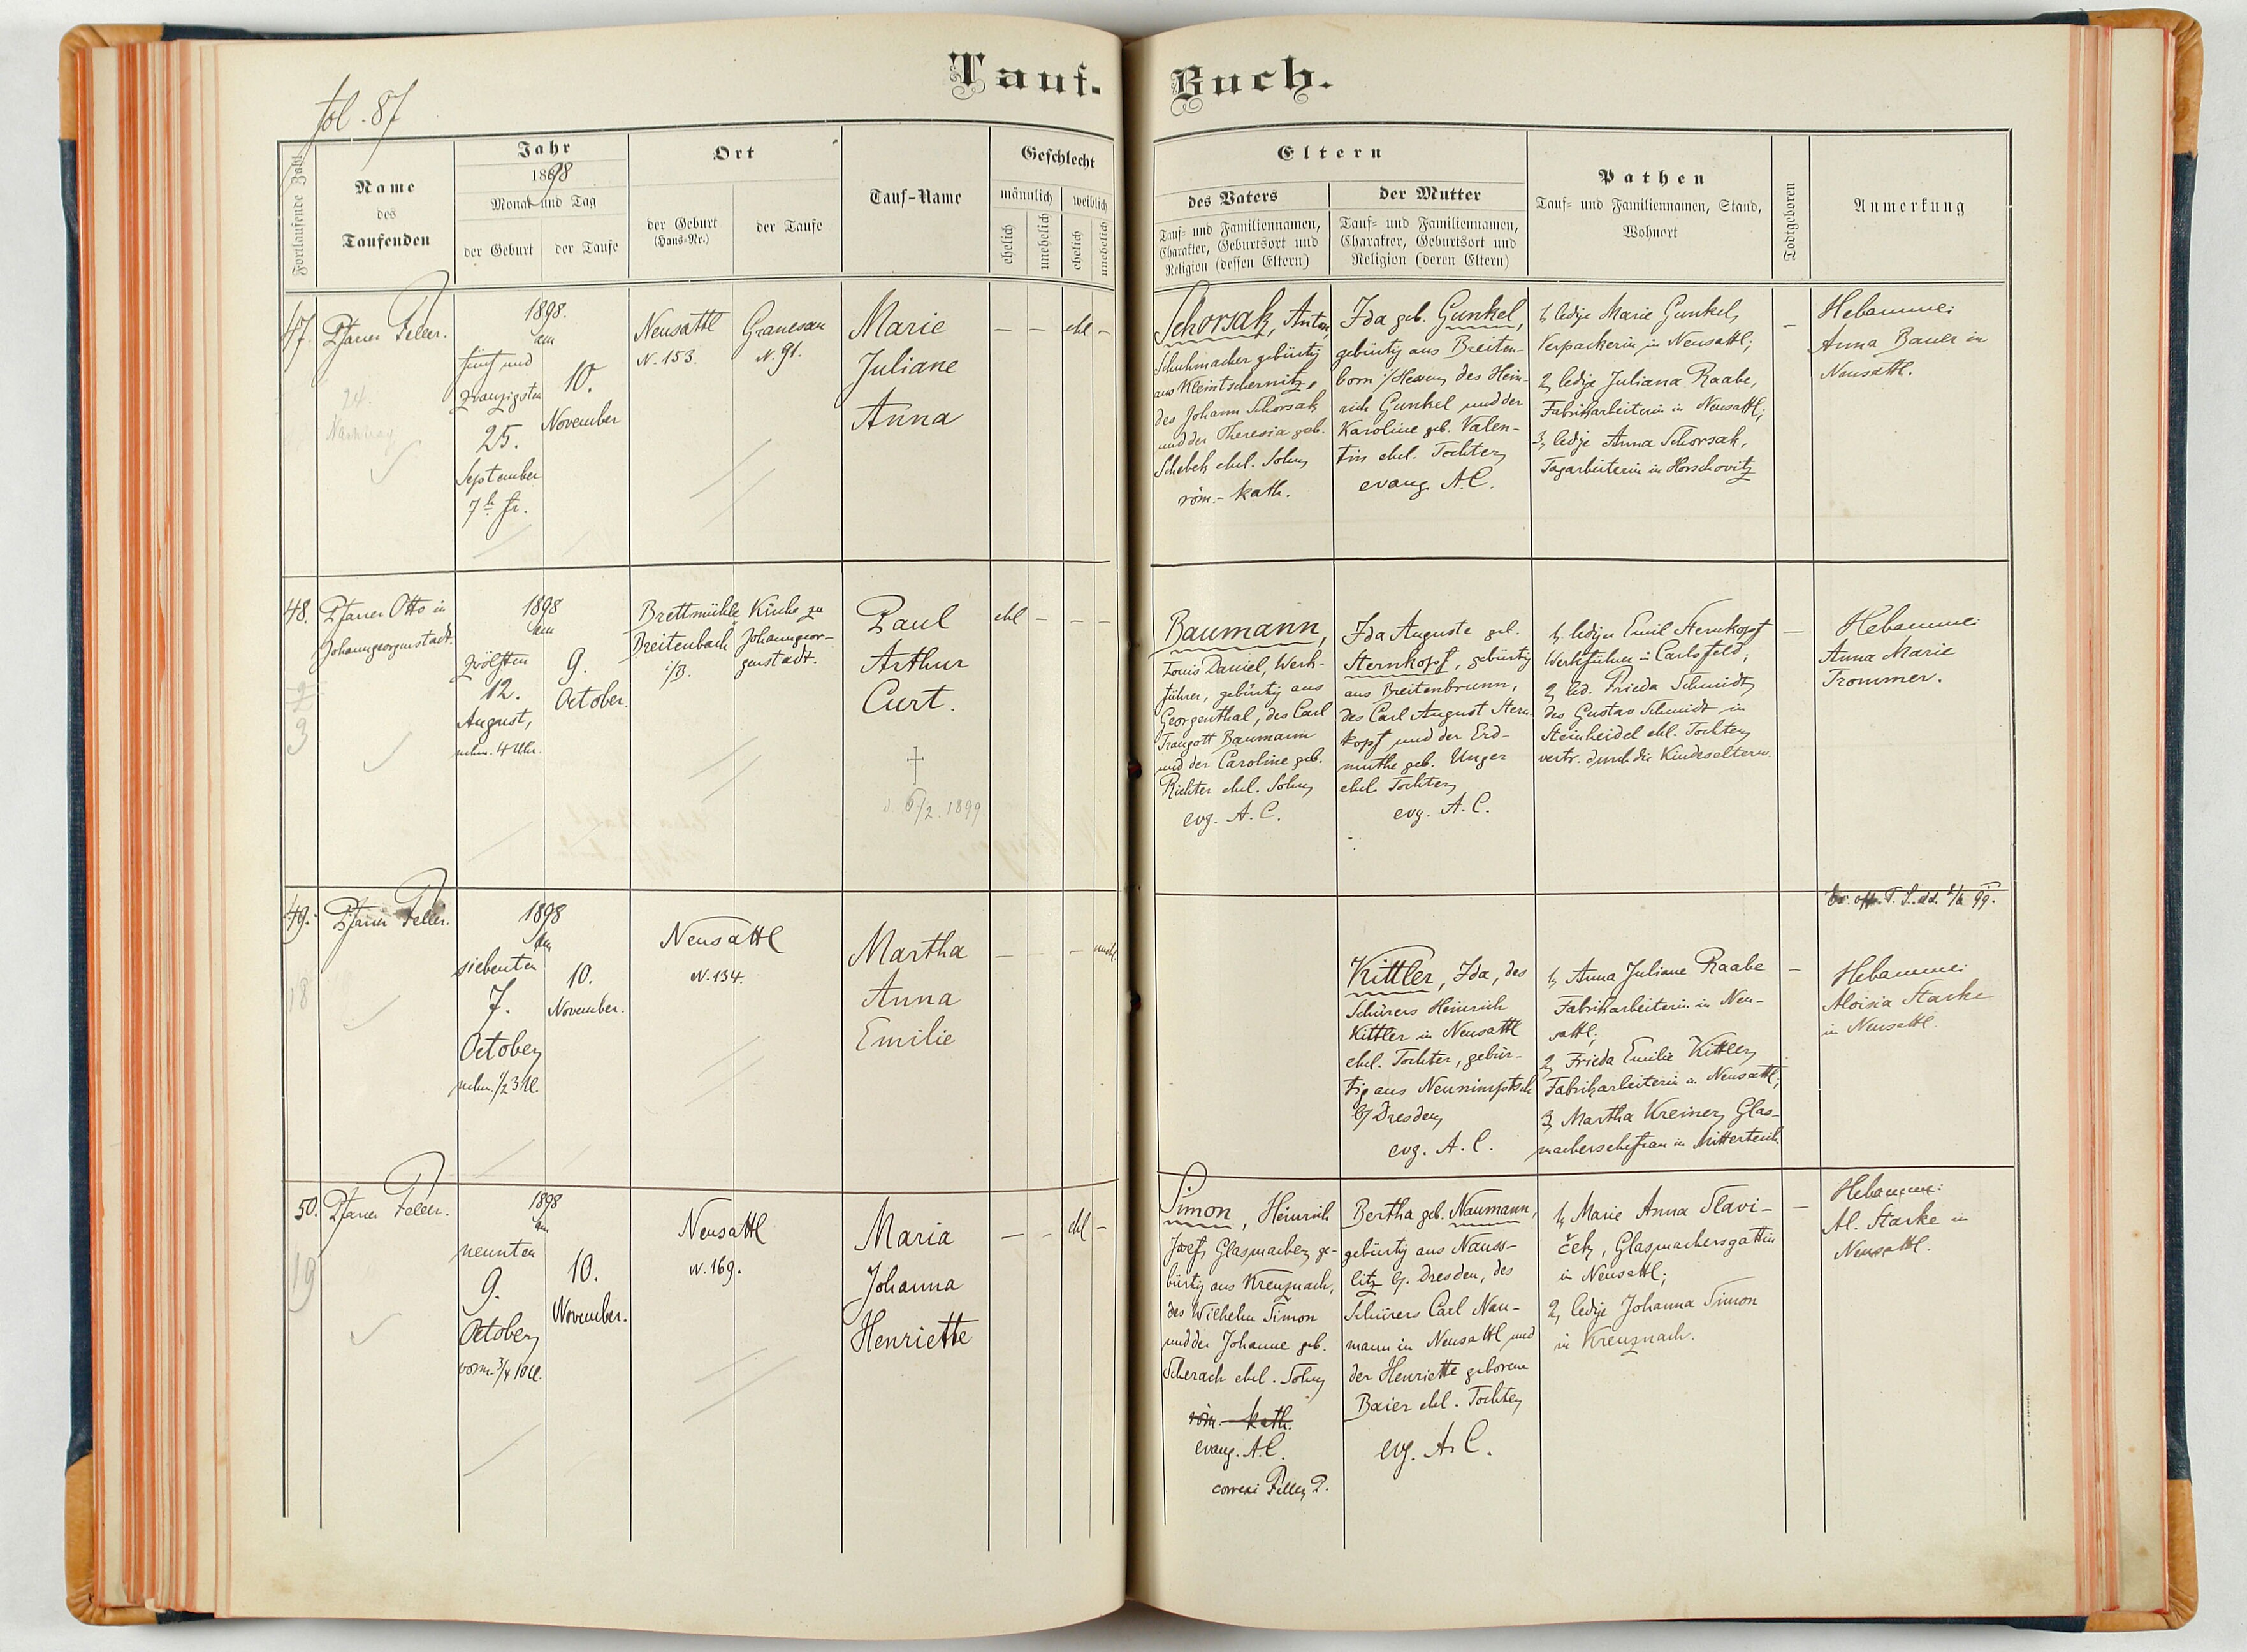 fol. 87
Tauf-Buch.
Fortlaufende Zahl
Name
des
Taufenden
Jahr
1898
Monat und Tag
der Geburt
der Taufe
Ort
der Geburt
(Haus-Nr.)
der Taufe
Tauf-Name
Geschlecht
männlich
weiblich
ehelich
unehelich
ehelich
unehelich
Eltern
des Vaters
Tauf- und Familiennamen,
Charakter, Geburtsort und
Religion (dessen Eltern)
der Mutter
Tauf- und Familiennamen,
Charakter, Geburtsort und
Religion (deren Eltern)
Pathen
Tauf- und Familiennamen, Stand,
Wohnort
Todtgeboren
Anmerkung
47.
Pfarrer Feller.
24.
Nachtrag
1898.
am
fünf und
zwanzigsten
25.
September
7 h fr.
10.
November
Neusattl
N. 153.
Granesau
N. 91.
Marie
Juliane
Anna
– – ehl –
Schorsak, Anton,
Schuhmacher gebürtig
aus Kleintschernitz,
des Johann Schorsak
und der Theresia geb.
Schebek ehel. Sohn,
röm.-kath.
Ida geb. Gunkel,
gebürtig aus Breiten-
born i/Hessen, des Hein-
rich Gunkel und der
Karoline geb. Valen-
tin ehel. Tochter,
evang. A.C.
1, ledige Marie Gunkel,
Verpackerin in Neusattl;
2, ledige Juliana Raabe,
Fabriksarbeiterin in Neusattl;
3, ledige Anna Schorsak,
Tagarbeiterin in Horschovitz
–
Hebamme:
Anna Bauer in
Neusattl.
48.
Pfarrer Otto in
Johanngeorgenstadt.
3
1898
am
zwölften
12.
August,
nchm. 4 Uhr.
9.
October.
Brettmühle
Breitenbach
i/B.
Kirche zu
Johanngeor-
genstadt.
Paul
Arthur
Curt.
+
d. 6/2. 1899
ehl – – –
Baumann,
Louis Daniel, Werk-
führer, gebürtig aus
Georgenthal, des Carl
Traugott Baumann
und der Caroline geb.
Richter ehel. Sohn,
evg. A. C.
Ida Auguste geb.
Sternkopf, gebürtig
aus Breitenbrunn,
des Carl August Stern-
kopf und der Erd-
muthe geb. Unger
ehel. Tochter,
evg. A. C.
1, lediger Emil Sternkopf
Werkführer in Carlsfeld;
2, led. Frieda Schmidt,
des Gustav Schmidt in
Steinheidel ehl. Tochter,
vertr. durch die Kindeseltern.
–
Hebamme:
Anna Marie
Trommer.
49.
Pfarrer Feller.
18
1898
am
siebenten
7.
October,
nchm. 1/2 3 U.
10.
November.
Neusattl
N. 134.
Martha
Anna
Emilie
– – unehl.
Kittler, Ida, des
Schürers Heinrich
Kittler in Neusattl
ehel. Tochter, gebür-
tig aus Neunimptsch
b/ Dresden,
evg. A. C.
1, Anna Juliane Raabe
Fabriksarbeiterin in Neu-
sattl;
2, Frieda Emilie Kittler,
Fabriksarbeiterin a. Neusattl;
3, Martha Kreiner, Glas-
machersehefrau in Mitterteich
–
Hebamme:
Aloisia Starke
in Neusattl.
50.
Pfarrer Feller.
19
1898
am
neunten
9.
October,
vorm. 3/4 10 U.
10.
November.
Neusattl
N. 169.
Maria
Johanna
Henriette
– – ehl –
Simon, Heinrich
Josef, Glasmacher, ge-
bürtig aus Kreuznach,
des Wilhelm Simon
und der Johanne geb.
Scherach ehel. Sohn,
röm.-kath.
evang. A.C.
correxi Feller, P.
Bertha geb. Naumann,
gebürtig aus Nauss-
litz b/. Dresden, des
Schürers Carl Nau-
mann in Neusattl und
der Henriette geborene
Baier ehl. Tochter,
evg. A. C.
1, Marie Anna Slavi-
ček, Glasmachersgattin
in Neusattl;
2, ledige Johanna Simon
in Kreuznach.
–
Hebamme:
Al. Starke in
Neusattl.